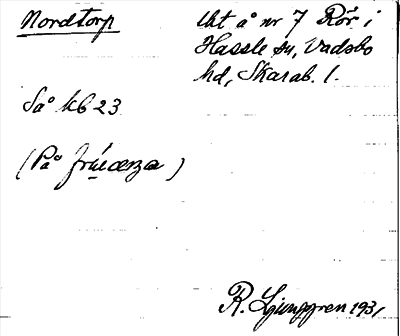 Nordtorp
Uht å nr 7 Rör i
Hassle sn, Vadsbo
hd, Skarab. l.
Så kb 23
(På )
R. Ljunggren 1931